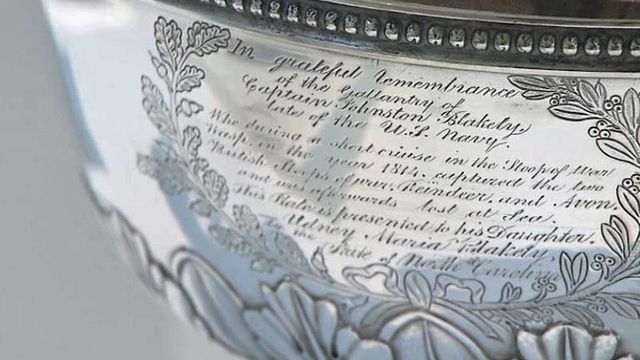 In grateful Remembrance
of the Gallantry of
Captain Johnston Blakely,
late of the U.S. Navy.
Who during a short cruise in the Sloop of War
Wasp, in the year 1814, captured the two
British Sloops of war, Reindeer, and Avon,
and was afterwards lost at Sea.
This Plate is presented to his Daughter
Udney Maria Blakely,
by the State of North Carolina